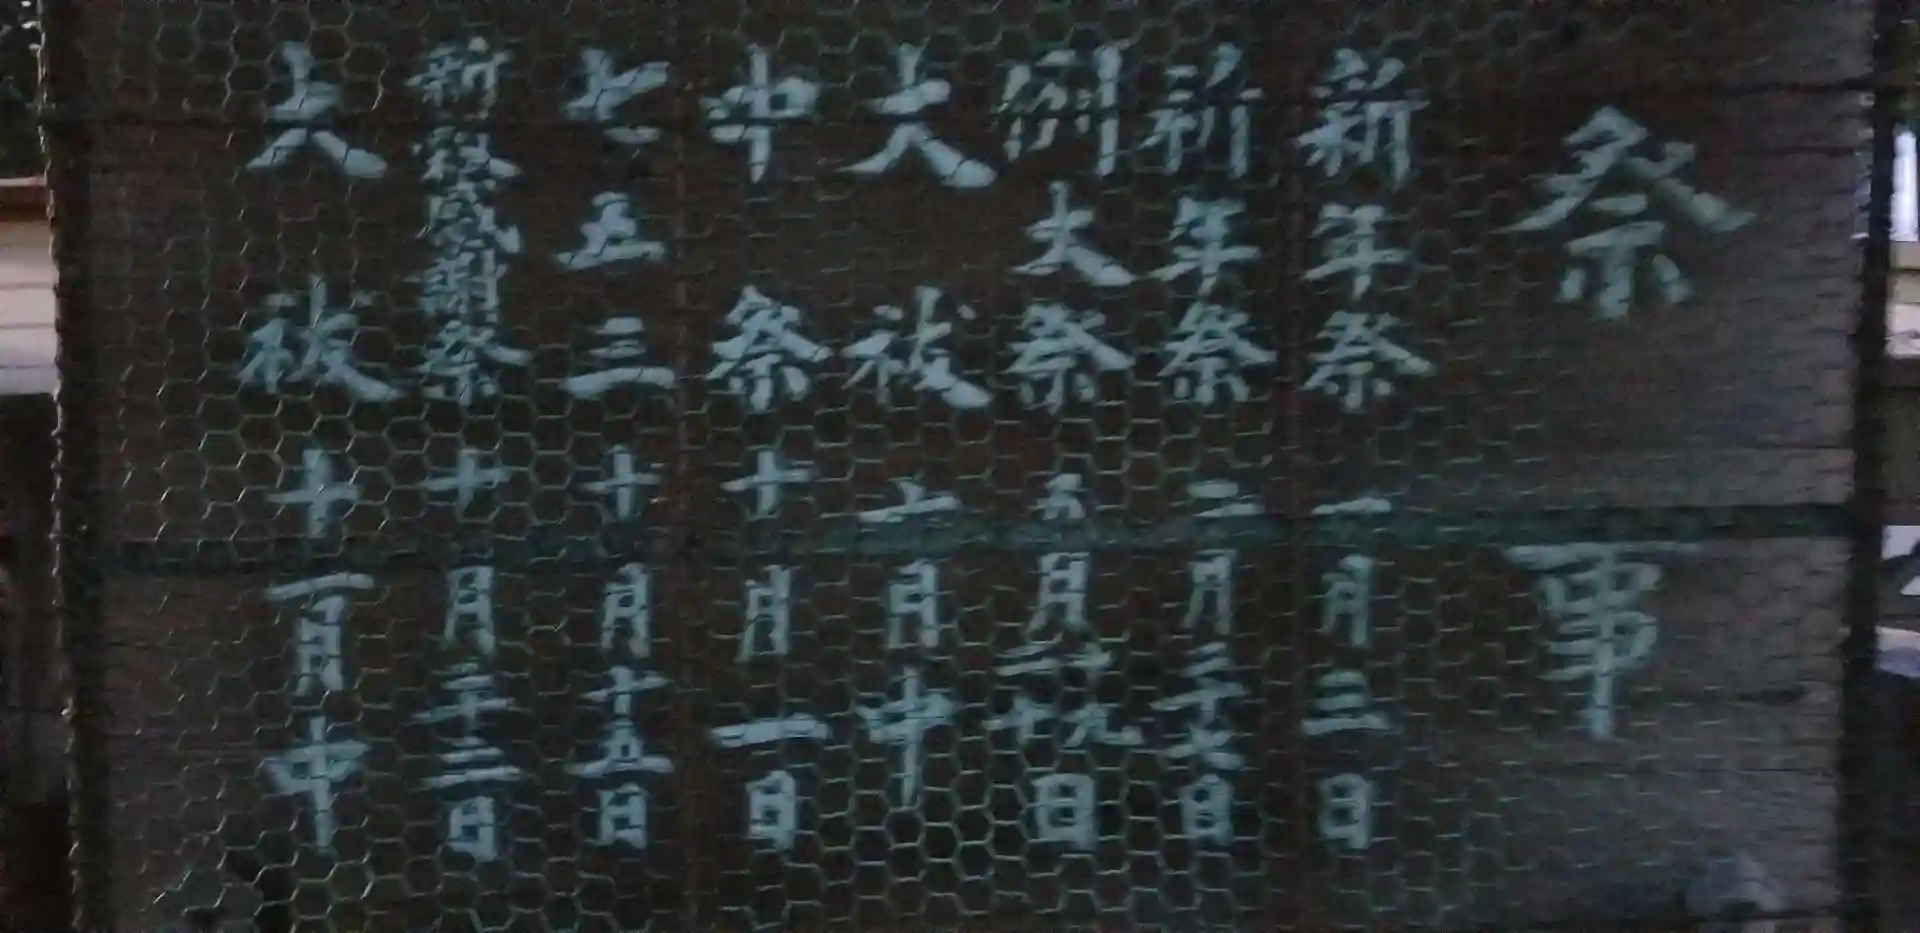 祭事
新年祭 一月三日
祈年祭 二月二十七日
例大祭 五月 日
大祓 六月中
中祭 十月一日
七五三 十月十五日
新穀感謝祭 十月二十三日
大祓 十一月中